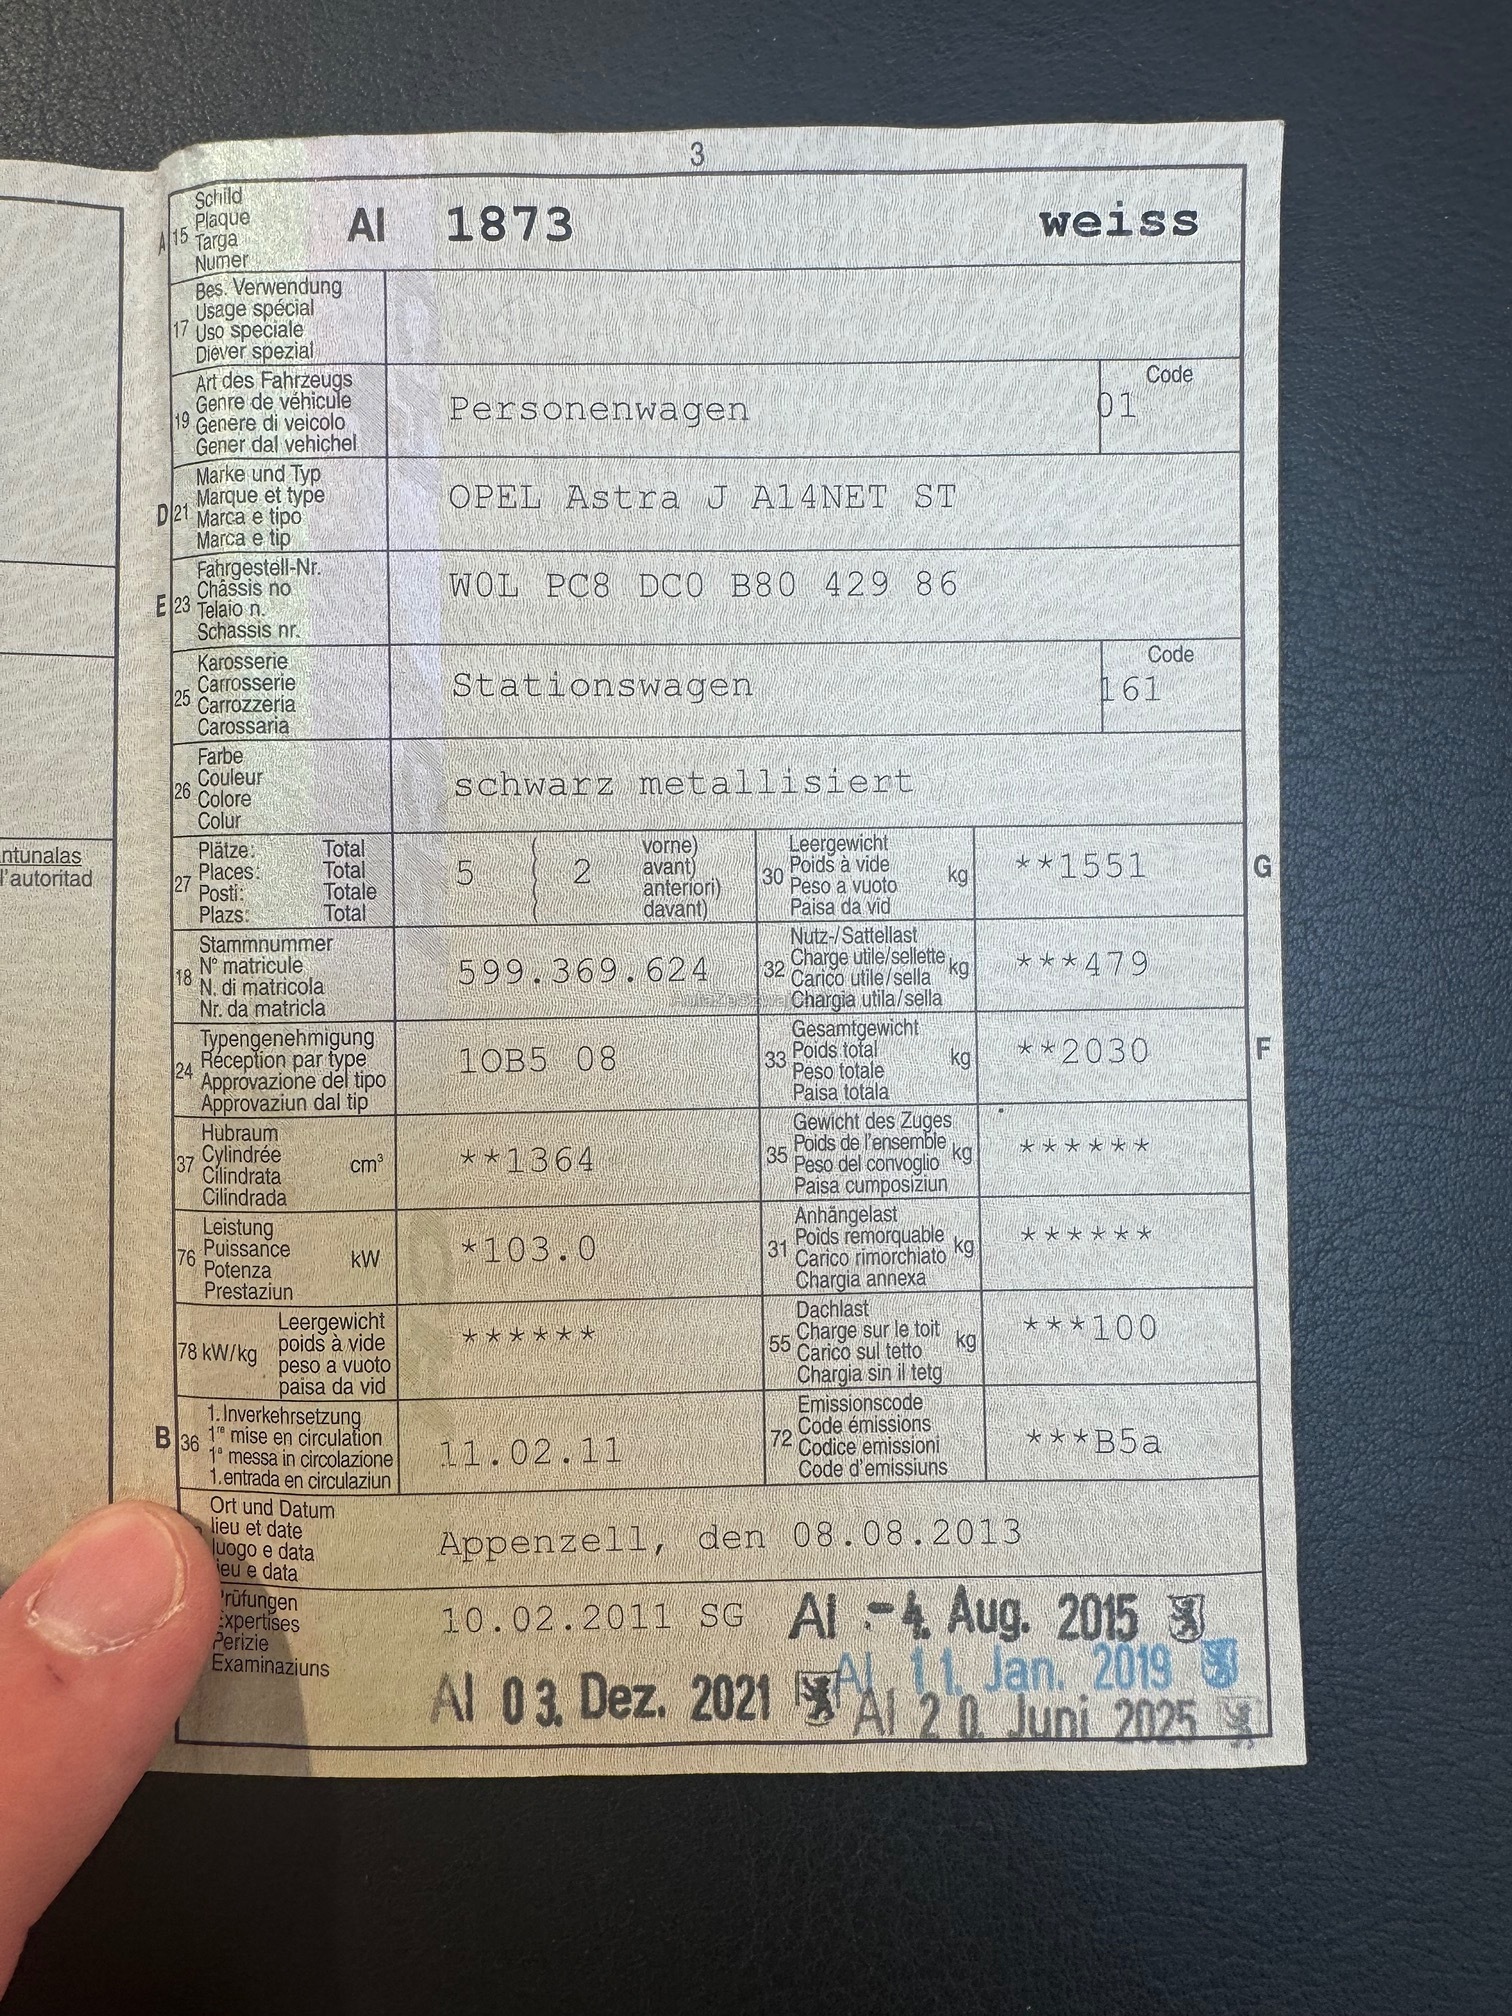 3
A 15 Schild
Plaque
Targa
Numer
AI 1873 weiss
17 Bes. Verwendung
Usage spécial
Uso speciale
Diever spezial
19 Art des Fahrzeugs
Genre de véhicule
Genere di veicolo
Gener dal vehichel
Personenwagen
Code
01
D 21 Marke und Typ
Marque et type
Marca e tipo
Marca e tip
OPEL Astra J A14NET ST
E 23 Fahrgestell-Nr.
Châssis no
Telaio n.
Schassis nr.
W0L PC8 DC0 B80 429 86
25 Karosserie
Carrosserie
Carrozzeria
Carossaria
Stationswagen
Code
161
26 Farbe
Couleur
Colore
Colur
schwarz metallisiert
ntunalas
l'autoritad
27 Plätze: Total
Places: Total
Posti: Totale
Plazs: Total
5 ( 2
vorne)
avant)
anteriori)
davant)
30 Leergewicht
Poids à vide
Peso a vuoto
Paisa da vid
kg
**1551
G
18 Stammnummer
N° matricule
N. di matricola
Nr. da matricla
599.369.624
32 Nutz-/Sattellast
Charge utile/sellette
Carico utile/sella
Chargia utila/sella
kg
***479
24 Typengenehmigung
Réception par type
Approvazione del tipo
Approvaziun dal tip
1OB5 08
33 Gesamtgewicht
Poids total
Peso totale
Paisa totala
kg
**2030
F
37 Hubraum
Cylindrée
Cilindrata
Cilindrada
cm³
**1364
35 Gewicht des Zuges
Poids de l'ensemble
Peso del convoglio
Paisa cumposiziun
kg
******
76 Leistung
Puissance
Potenza
Prestaziun
kW
*103.0
31 Anhängelast
Poids remorquable
Carico rimorchiato
Chargia annexa
kg
******
78 kW/kg
Leergewicht
poids à vide
peso a vuoto
paisa da vid
******
55 Dachlast
Charge sur le toit
Carico sul tetto
Chargia sin il tetg
kg
***100
B 36 1. Inverkehrsetzung
1re mise en circulation
1a messa in circolazione
1. entrada en circulaziun
11.02.11
72 Emissionscode
Code émissions
Codice emissioni
Code d'emissiuns
***B5a
Ort und Datum
lieu et date
luogo e data
ieu e data
Appenzell, den 08.08.2013
rüfungen
Expertises
Perizie
Examinaziuns
10.02.2011 SG
AI - 4. Aug. 2015
AI 11. Jan. 2019
AI 03. Dez. 2021
AI 20. Juni 2025